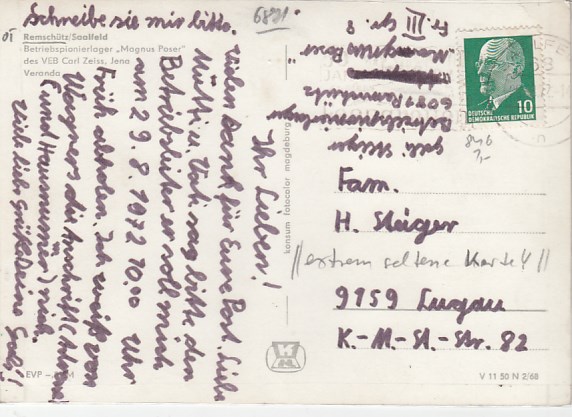 Schreibe sie mir bitte.
01
Remschütz/Saalfeld
Betriebspionierlager „Magnus Poser"
des VEB Carl Zeiss, Jena
Veranda
Ihr Lieben!
Vielen Dank für Eure Post. Liebe
Mutti u. Vati sag bitte den
Betriebsleiter er soll mich
am 29.8.1972 10.00 Uhr
früh abholen. Ich weiß von
Wagners die Anschrift (
(und Hausnummer) nich.
viele liebe Grüße
EVP –
konsum fotocolor magdeburg
6891.
Gabi Steiger
Betriebspionierlager
"Magnus Poser"
Gr. 8
10
DEUTSCHE
DEMOKRATISCHE REPUBLIK
Fam.
H. Steiger
//extrem seltene Karte!!//
9159 Lugau
K.-M.-St.-Str. 82
V 11 50 N 2/68